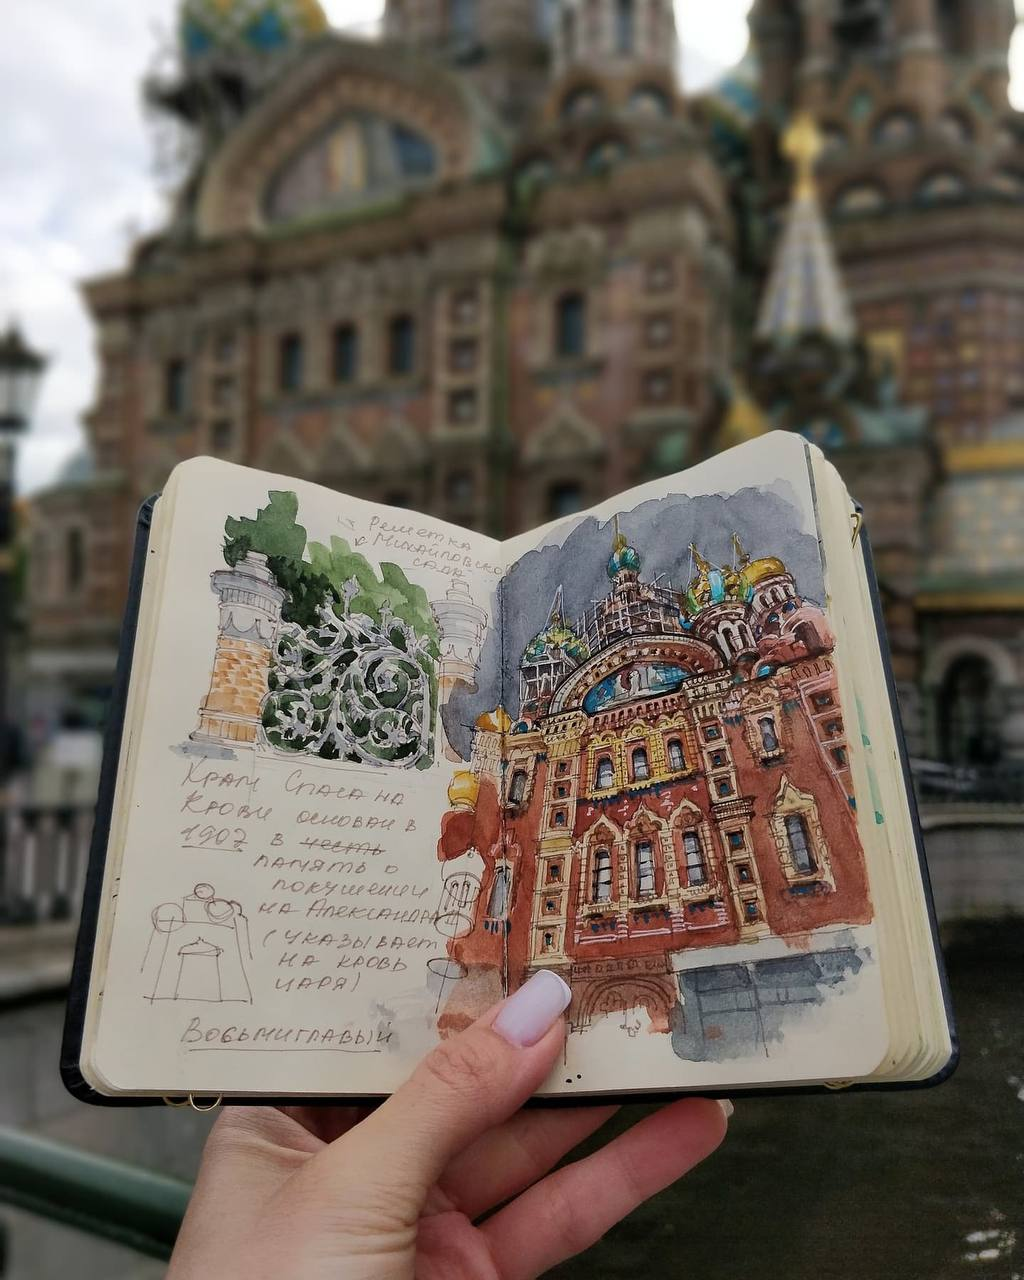 Решетка
к Михайловскому
саду
Храм Спаса на
Крови основан в
1907 в честь
память о
покушении
на Александра II
(указывает
на кровь
царя)
Восьмиглавый